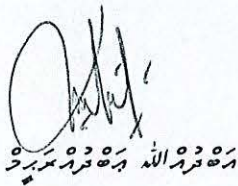 އަބްދުﷲ ޢަބްދުއްރަޙީމް